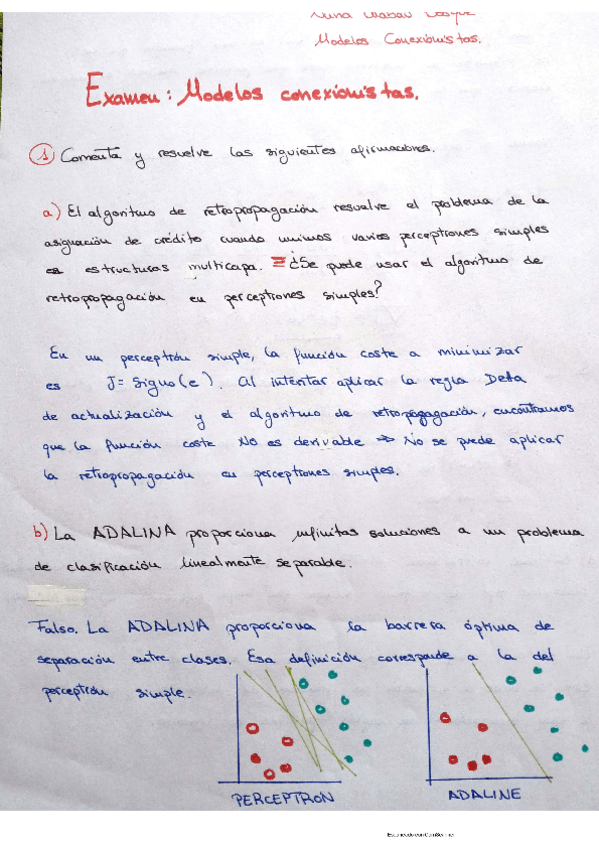 Modelos Conexionistas.
Examen: Modelos conexionistas.
① Comenta y resuelve las siguientes afirmaciones.
a) El algoritmo de retropropagación resuelve el problema de la
asignación de crédito cuando unimos varios perceptrones simples
en estructuras multicapa. ¿Se puede usar el algoritmo de
retropropagación en perceptrones simples?
En un perceptrón simple, la función coste a minimizar
es J = Signo(e). Al intentar aplicar la regla Delta
de actualización y el algoritmo de retropropagación, encontramos
que la función coste NO es derivable => No se puede aplicar
la retropropagación en perceptrones simples.
b) La ADALINA proporciona infinitas soluciones a un problema
de clasificación linealmente separable.
Falso. La ADALINA proporciona la barrera óptima de
separación entre clases. Esa definición corresponde a la del
perceptrón simple.
PERCEPTRON
ADALINE
Escaneado con CamScanner